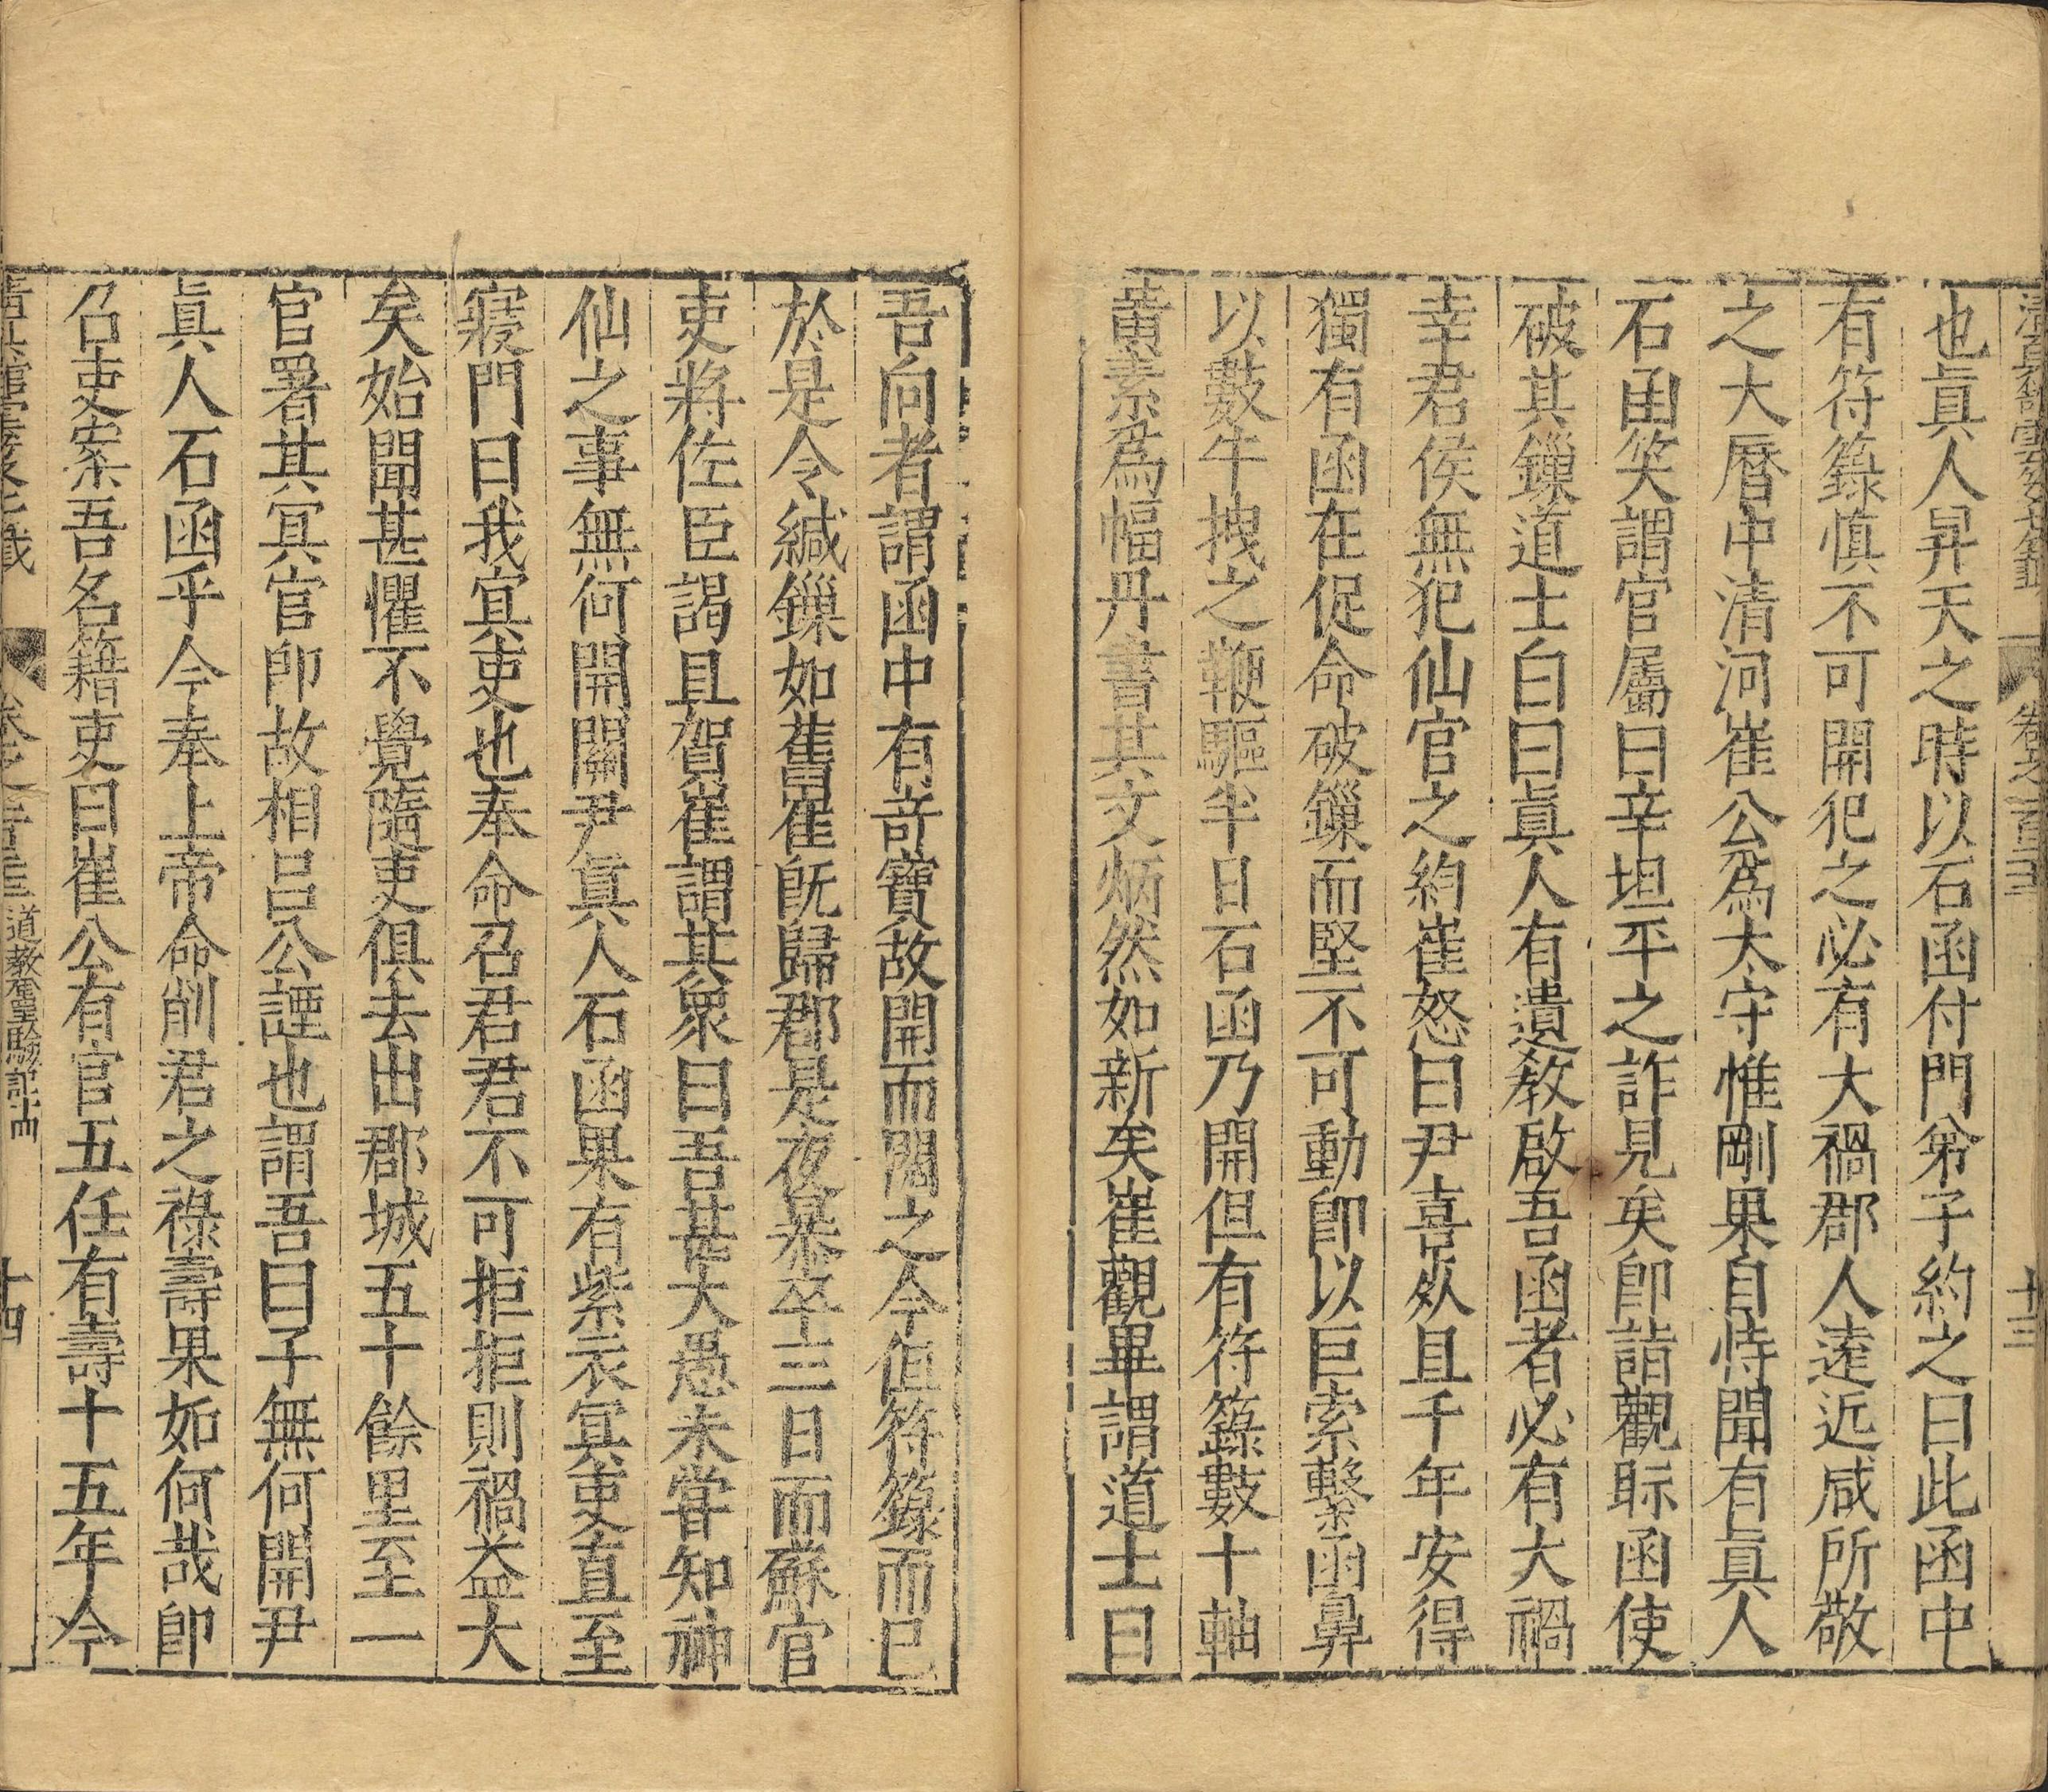 也眞人昇天之時以石函付門弟子約之曰此函中
有符籙慎不可開犯之必有大禍郡人遠近咸所敬
之大曆中清河崔公爲大守惟剛果自恃聞有眞人
石函笑謂官屬曰辛坦平之詐見矣卽詣觀眎函使
破其鏁道士白曰眞人有遺敎啟吾函者必有大禍
幸君侯無犯仙官之約崔怒曰尹喜歿且千年安得
獨有函在促命破鏁而堅不可動卽以巨索繫函鼻
以數牛拽之鞭驅半日石函乃開但有符籙數十軸
黃素爲幅丹書其文炳然如新矣崔觀畢謂道士曰
十三
吾向者謂函中有奇寶故開而閱之今但符籙而已
於是令緘鏁如舊崔旣歸郡是夜暴卒三日而蘇官
吏將佐臣謁且賀崔謂其衆曰吾甚大愚未嘗知神
仙之事無何開關尹眞人石函果有紫衣冥吏直至
寢門曰我冥吏也奉命召君君不可拒拒則禍益大
矣始聞甚懼不覺隨吏俱去出郡城五十餘里至一
官署其冥官卽故相呂公諲也謂吾曰子無何開尹
眞人石函乎今奉上帝命削君之祿壽果如何哉卽
召吏案吾名籍吏曰崔公有官五任有壽十五年今
道教靈驗記
十四